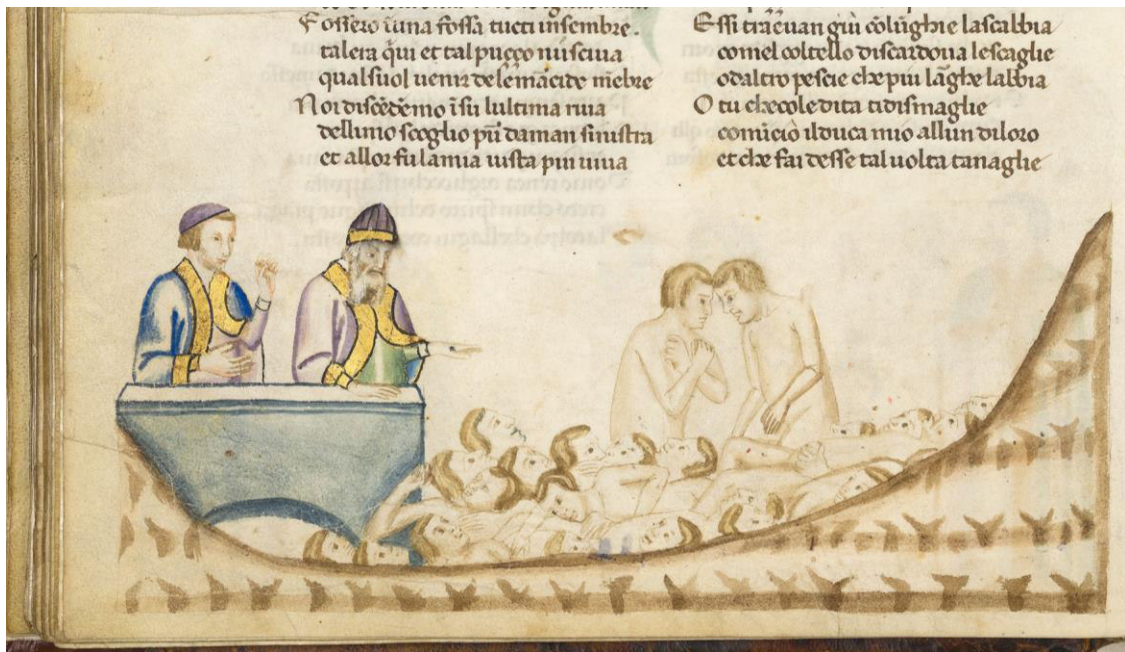 Fossero ĩuna fossa tucti insembre.
talera q̃ui et tal puçço nusciua
qualsuol uenir dele mebre
Noi discẽdẽmo ĩsu lultima riua
dellunio scoglio pur̃ daman sinistra
et allor fu lamia uista piu uiua
Essi traeuan giù cõlũghie lascabbia
comel coltello discardoua lescaglie
odaltro pescie che piu lãghe labbia
O tu checoledita tidismaglie
comĩciò ilduca mio allun diloro
et che fai desse tal uolta tanaglie